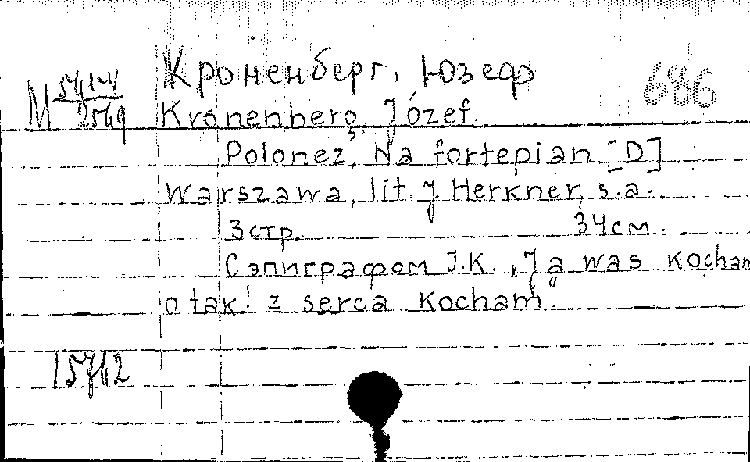 Кроненберг, Юзеф
686
M
2569
Kronenberg, Józef.
Polonez, Na fortepian [D]
Warszawa, lit. J Herkner, s.a.
3 стр. 34 см.
С эпиграфом J.K. „Ja was kocham
o tak! z serca kocham.